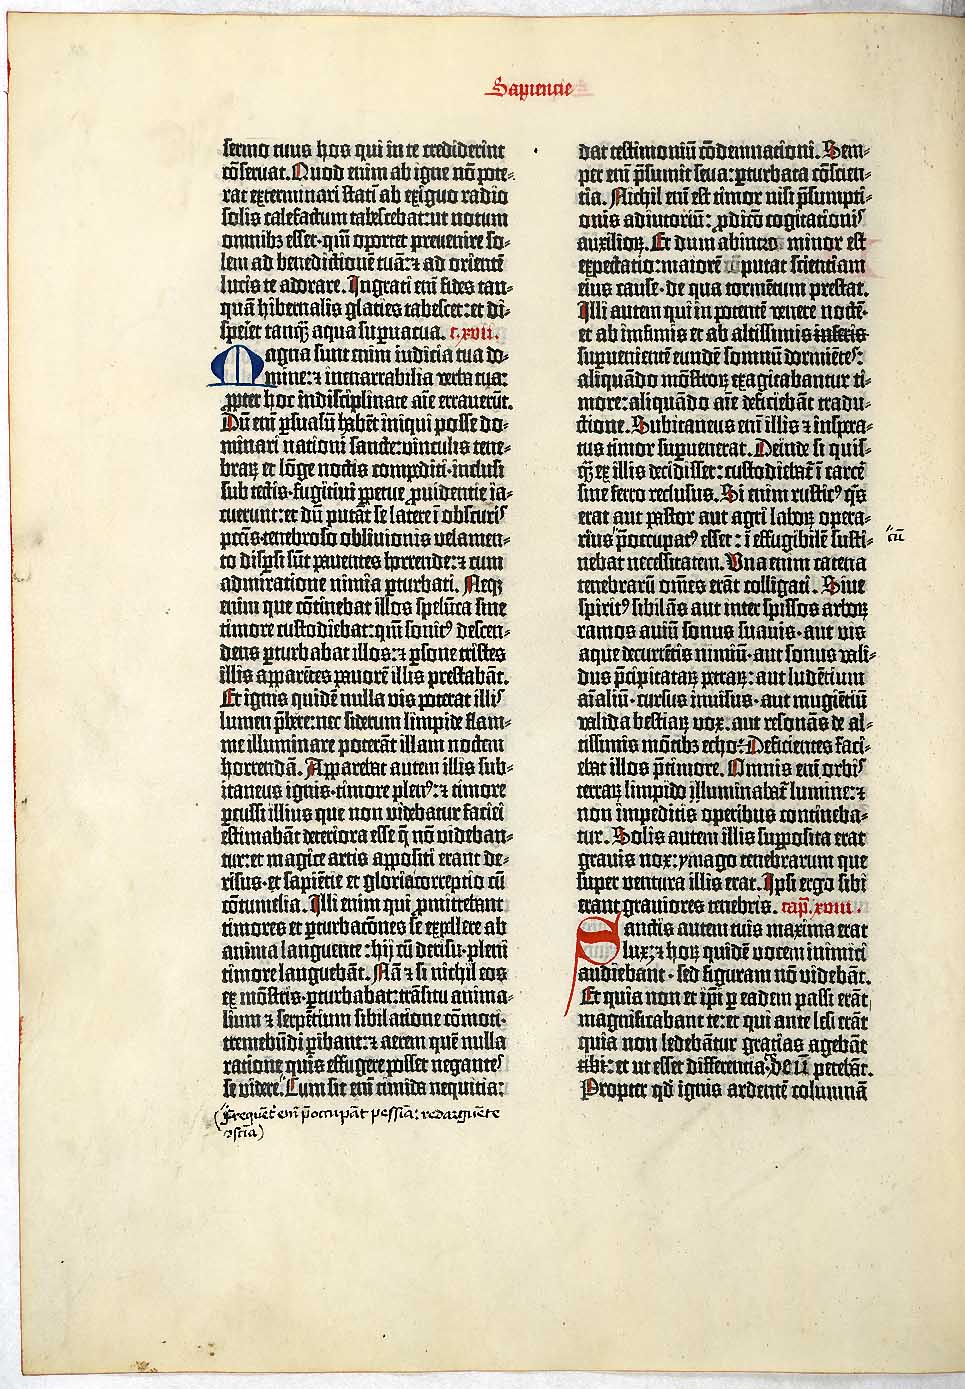 Sapientie
sermo tuus hos qui in te crediderint
cōseruat. Quod enim ab igne nō pote-
rat exterminari statī ab exiguo radio
solis calefactum tabescebat: ut notum
omnibꝫ esset · qm̄ oportet preuenire so-
lem ad benedictionē tuā: ⁊ ad orientē
lucis te adorare. Ingrati em̄ fides tan-
quā hibernalis glacies tabescet: et di-
speriet tanqꝫ aqua supuacua. c. xvii.
Magna sunt enim iudicia tua do-
mine: ⁊ inenarrabilia verba tua:
ꝓpter hoc indisciplinate aīe errauerūt.
Dū em̄ psuasū habēt iniqui posse do-
minari nationi sancte: vinculis tene-
braꝝ et lōge noctis compediti · inclusi
sub tectis · fugitiui ppetue ꝓuidentie ia-
cuerunt: et dū putāt se latere ī obscuris
pctīs · tenebroso obliuionis velamen-
to dispsi sūt pauentes horrende: ⁊ cum
admiratione nimia pturbati. Neqꝫ
enim que cōtinebat illos spelūca sine
timore custodiebat: qm̄ sonitꝰ descen-
dens pturbabat illos: ⁊ psone tristes
illis apparētes pauorē illis prestabāt.
Et ignis quidē nulla vis poterat illis
lumen p̄bere: nec siderum limpide flam-
me illuminare poterāt illam noctem
horrendā. Apparebat autem illis sub-
itaneus ignis · timore plenꝰ: ⁊ timore
pcussi illius que non videbatur faciei
estimabāt deteriora esse q̄ nō videban-
tur: et magice artis appositi erant de-
risus · et sapiētie et glorie correptio cū
cōtumelia. Illi enim qui ꝓmittebant
timores et pturbatōnes se expellere ab
anima languente: hij cū derisu · pleni
timore languebāt. Nā ⁊ si nichil eos
ex mōstris · pturbabat: trāsitu anima-
lium ⁊ serpētium sibilatione cōmoti ·
tremebūdi pibant: ⁊ aerem quē nulla
ratione quis effugere posset negantes
se videre. Cum sit em̄ timida nequitia:
(Frequēt em̄ p̄occupāt pessīa: redarguēte
ꝯsciā)
dat testimoniū cōdemnationi. Sem-
per em̄ p̄sumit seua: pturbata cōscien-
tia. Nichil em̄ est timor nisi p̄sumpti-
onis adiutoriū: ꝓditio cogitationis
auxilioꝝ. Et dum ab intro minor est
expectatio: maiorē putat scientiam
eius cause · de qua tormētum prestat.
Illi autem qui in potentē venere noctē ·
et ab infimis et ab altissimis inferis
supuenientē eundē somnū dormiētes:
aliquādo mōstroꝝ exagitabantur ti-
more: aliquādo aīe deficiebāt tradu-
ctione. Subitaneus em̄ illis ⁊ inspera-
tus timor supuenerat. Deinde si quis-
qꝫ ex illis decidisset: custodiebat̄ ī carcē
sine ferro reclusus. Si enim rusticꝰ qs̄
erat aut pastor aut agri laboꝝ opera-
rius p̄occupatꝰ esset: ī effugibilē susti-
cū
nebat necessitatem. Una enim catena
tenebrarū om̄es erāt colligati. Siue
spiritꝰ sibilās aut inter spissos arboꝝ
ramos auiū sonus suauis · aut vis
aque decurrētis nimiū · aut sonus vali-
dus p̄cipitataꝝ petraꝝ: aut ludētium
aīaliū · cursus inuisus · aut mugiētiū
valida bestiaꝝ vox · aut resonās de al-
tissimis mōtibꝫ echo: Deficientes faci-
ebāt illos p̄ timore. Omnis em̄ orbis
terraꝝ limpido illuminabat̄ lumine: ⁊
non impeditis operibus contineba-
tur. Solis autem illis supposita erat
grauis nox: ymago tenebrarum que
super ventura illis erat. Ipsi ergo sibi
erant grauiores tenebris. cap̄. xviii.
Sanctis autem tuis maxima erat
lux: ⁊ hoꝝ quidē vocem inimici
audiebant · sed figuram nō videbāt.
Et quia non et ip̄i p eadem passi erāt
magnificabant te: et qui ante lesi erāt
quia non ledebātur gratias agebāt
tibi: et ut esset differentia · deū petebāt.
Propter qd̄ ignis ardentē columnā